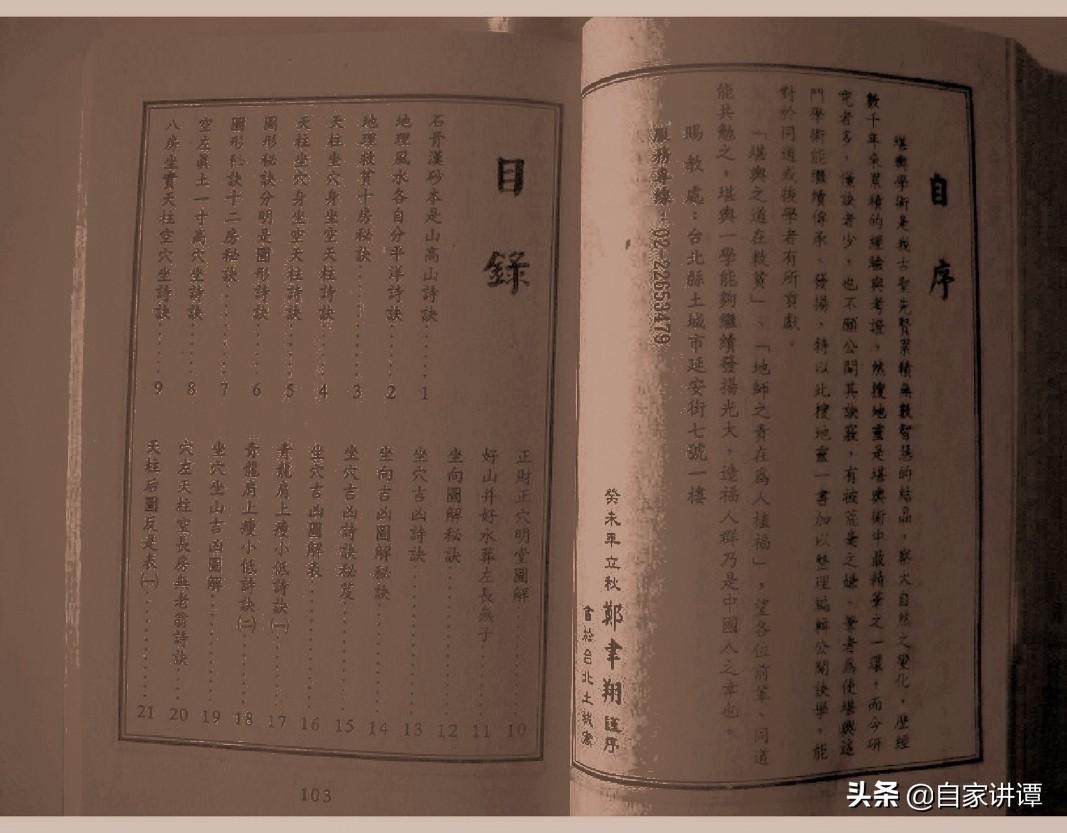 自序
堪輿學術是我古聖先賢累積無數智慧的結晶，察大自然之變化，歷經
數十年來累積的經驗與考證，然搜地靈是堪輿術中最精華之一環，而今研
究者多，懂訣者少，也不願公開其訣竅，有被荒棄之嫌。筆者為使堪輿這
門學術能繼續傳承、發揚，特以此搜地靈一書加以整理編輯公開訣學，能
對於同道或後學者有所貢獻。
「堪輿之道在救貧」、「地師之責在為人植福」，望各位前輩、同道
能共勉之，堪輿一學能夠繼續發揚光大，造福人群乃是中國人之幸也。
賜教處：台北縣土城市延安街七號一樓
服務專線：02-22653479
癸未年立秋 鄭聿翔 謹序
目錄
石骨漢砂本是山高山詩訣……1
地理風水各自分平洋詩訣……2
地理救貧十房秘訣……3
天柱坐穴身坐空天柱詩訣……4
天柱坐穴身坐空天柱詩訣……5
圖形秘訣分明是圖形詩訣……6
圖形秘訣十二房秘訣……7
空左真土一寸高穴坐詩訣……8
八房坐實天柱空穴坐詩訣……9
正財正穴明堂圖解……10
好山并好水葬左長無子……11
坐向圖解秘訣……12
坐穴吉凶詩訣……13
坐向吉凶圖解秘訣……14
坐穴吉凶詩訣秘笈……15
坐穴吉凶圖解表……16
青龍肩上瘦小低詩訣(一)……17
青龍肩上瘦小低詩訣(二)……18
坐穴坐山吉凶圖解……19
穴左天柱空長房無老翁詩訣……20
天柱后圖反是表(一)……21
103
头条 @自家讲谭